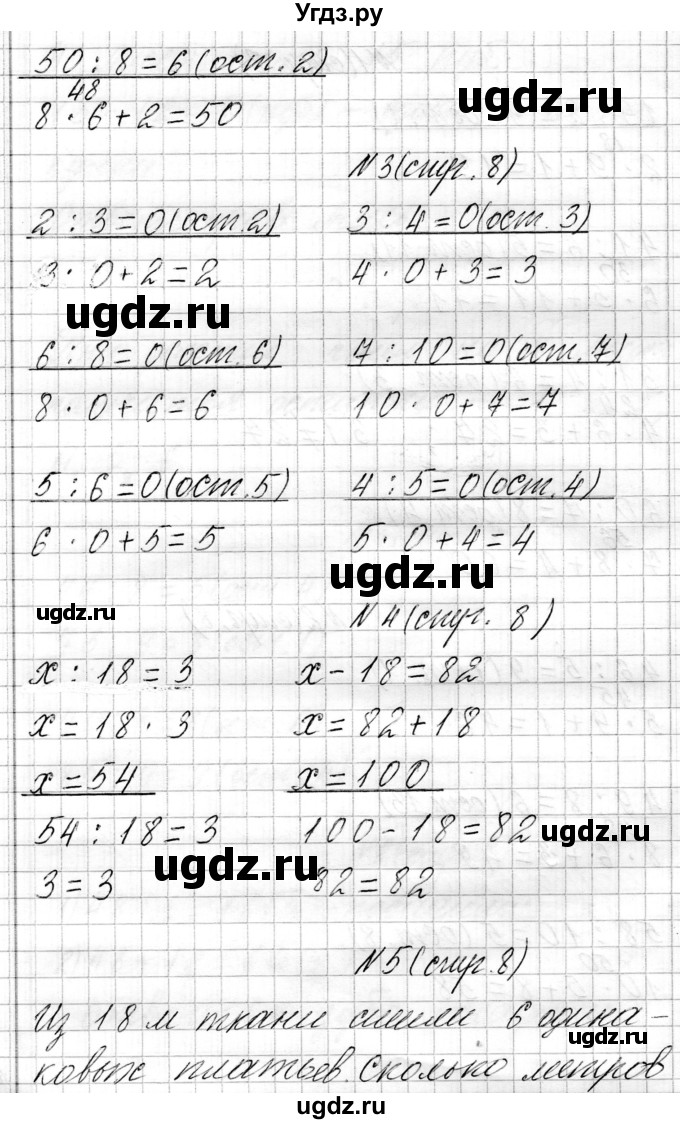 Угдз.ру
50 : 8 = 6 (ост. 2)
48
8 · 6 + 2 = 50
ugdz.ru
№3 (стр. 8)
2 : 3 = 0 (ост. 2) 3 : 4 = 0 (ост. 3)
3 · 0 + 2 = 2 4 · 0 + 3 = 3
ugdz.ru
6 : 8 = 0 (ост. 6) 7 : 10 = 0 (ост. 7)
8 · 0 + 6 = 6 10 · 0 + 7 = 7
5 : 6 = 0 (ост. 5) 4 : 5 = 0 (ост. 4)
6 · 0 + 5 = 5 5 · 0 + 4 = 4
ugdz.ru
ugdz.ru
№4 (стр. 8)
x : 18 = 3 x - 18 = 82
x = 18 · 3 x = 82 + 18
x = 54 x = 100
54 : 18 = 3 100 - 18 = 82
ugdz.ru
3 = 3 82 = 82
ugdz.ru
№5 (стр. 8)
Из 18 м ткани сшили 6 одина-
ковых платьев. Сколько метров
ugdz.ru